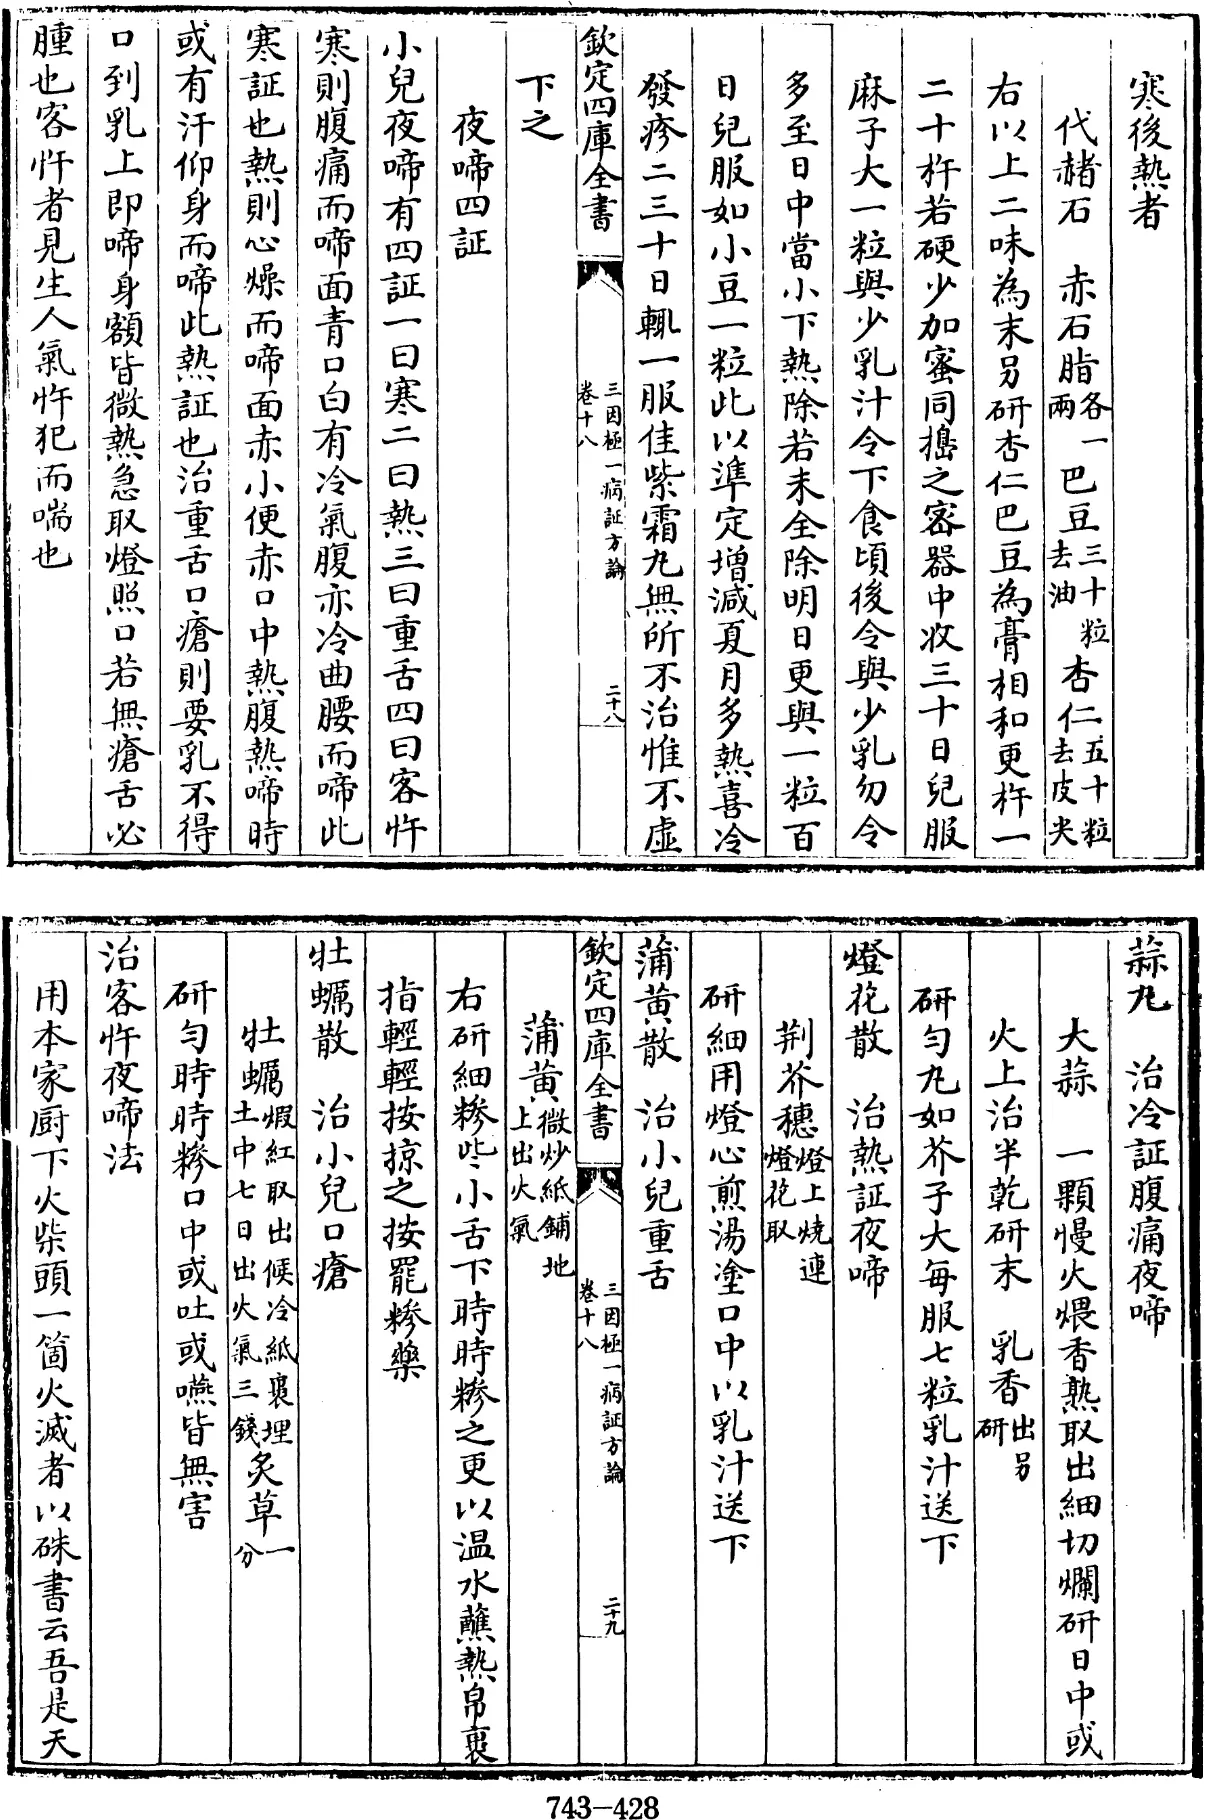 寒後熱者
代赭石　赤石脂各一兩　巴豆三十粒去油　杏仁五十粒去皮尖
右以上二味為末另研杏仁巴豆為膏相和更杵一
二十杵若硬少加蜜同搗之密器中收三十日兒服
麻子大一粒與少乳汁令下食頃後令與少乳勿令
多至日中當小下熱除若未全除明日更與一粒百
日兒服如小豆一粒此以準定增減夏月多熱喜冷
發疹二三十日輒一服佳紫霜丸無所不治惟不虛
欽定四庫全書　三因極一病証方論卷十八　二十八
下之
夜啼四証
小兒夜啼有四証一曰寒二曰熱三曰重舌四曰客忤
寒則腹痛而啼面青口白有冷氣腹亦冷曲腰而啼此
寒証也熱則心燥而啼面赤小便赤口中熱腹熱啼時
或有汗仰身而啼此熱証也治重舌口瘡則要乳不得
口到乳上即啼身額皆微熱急取燈照口若無瘡舌必
腫也客忤者見生人氣忤犯而喘也
蒜丸　治冷証腹痛夜啼
大蒜　一顆慢火煨香熟取出細切爛研日中或
火上治半乾研末　乳香出另研
研勻丸如芥子大每服七粒乳汁送下
燈花散　治熱証夜啼
荆芥穗燈上燒連燈花取
研細用燈心煎湯塗口中以乳汁送下
蒲黃散　治小兒重舌
欽定四庫全書　三因極一病証方論卷十八　二十九
蒲黃微炒紙鋪地上出火氣
右研細糝些小舌下時時糝之更以温水蘸熱帛裹
指輕輕按掠之按罷糝藥
牡蠣散　治小兒口瘡
牡蠣煅紅取出候冷紙裹埋土中七日出火氣三錢炙草一分
研勻時時糝口中或吐或嚥皆無害
治客忤夜啼法
用本家厨下火柴頭一箇火滅者以硃書云吾是天
743-428